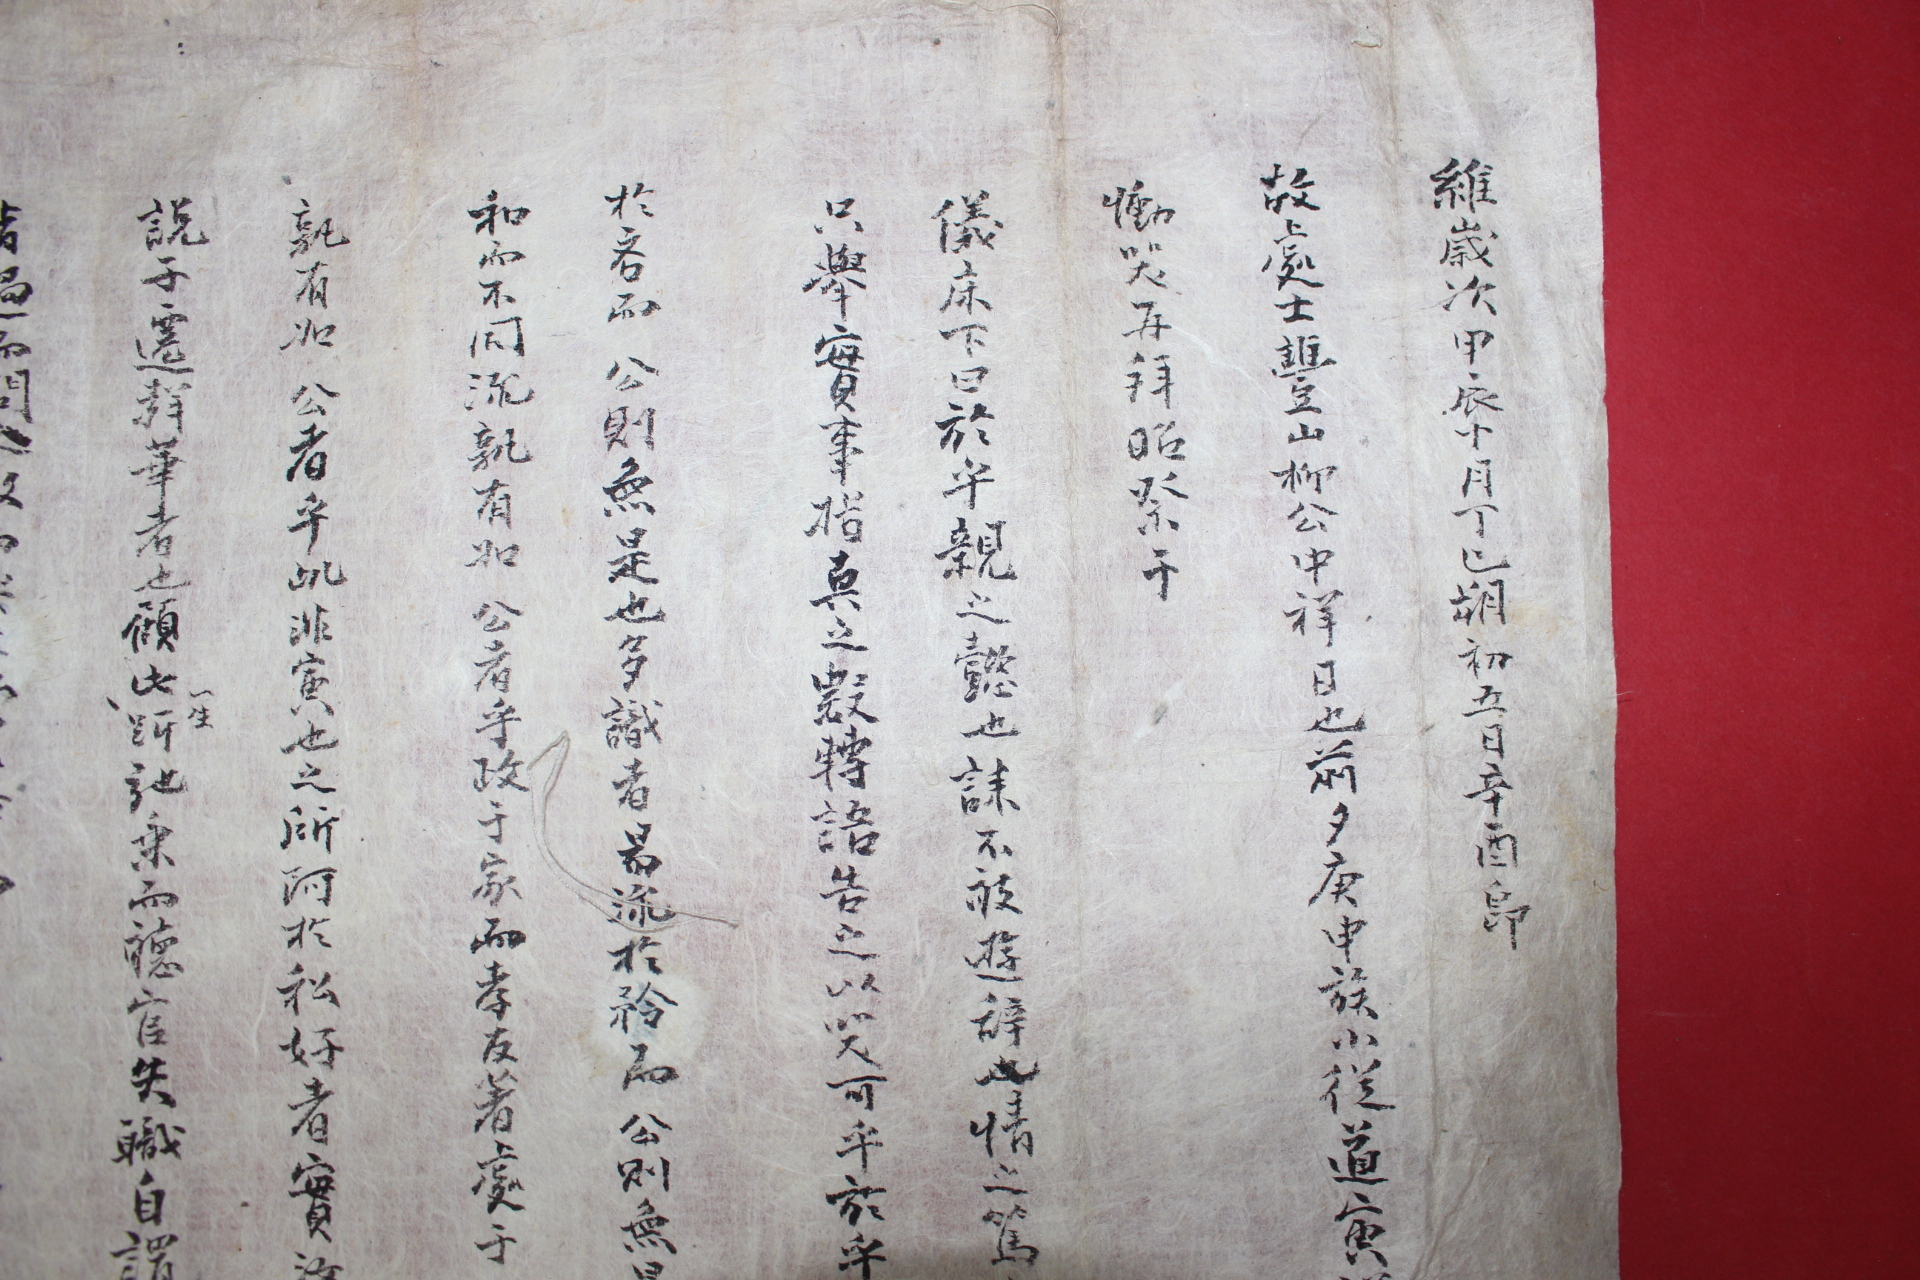 維歲次甲辰十月丁巳朔初五日辛酉卽
故處士豐山柳公中祥日也前夕庚申族小從道寅
慟哭再拜昭祭于
儀床下曰於乎親之懿也誄不敢遊辭也情之篤
只擧實事指真立殼轉語告之以哭可乎於乎
於吝而 公則無是也多識者易流於矜而 公則無是
和而不同流孰有如 公者乎政于家而孝友著處于
孰有如 公者乎此非寅也之所阿於私好者實
說子遷辭華者也顧此一生所記秉而德官失職自謂
而問